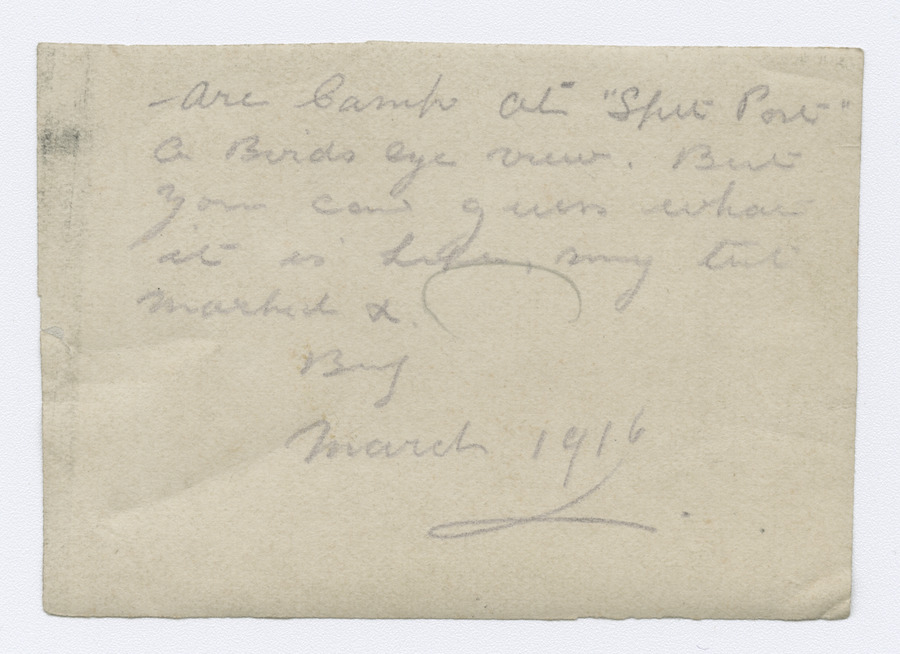 - Are Camp at "Spit Post"
A Birds Eye view. But
you can guess what
it is like, my tent
marked x.
March 1916